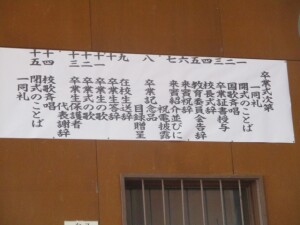 卒業式次第
一同礼
一 開式のことば
二 国歌斉唱
三 卒業証書授与
四 校長式辞
五 教育委員会告辞
六 来賓祝辞
七 来賓紹介並びに
祝電披露
八 卒業記念品
目録贈呈
九 在校生送辞
十 卒業生答辞
十一 卒業生の歌
十二 卒業式の歌
十三 卒業生保護者
代表謝辞
十四 校歌斉唱
十五 閉式のことば
一同礼